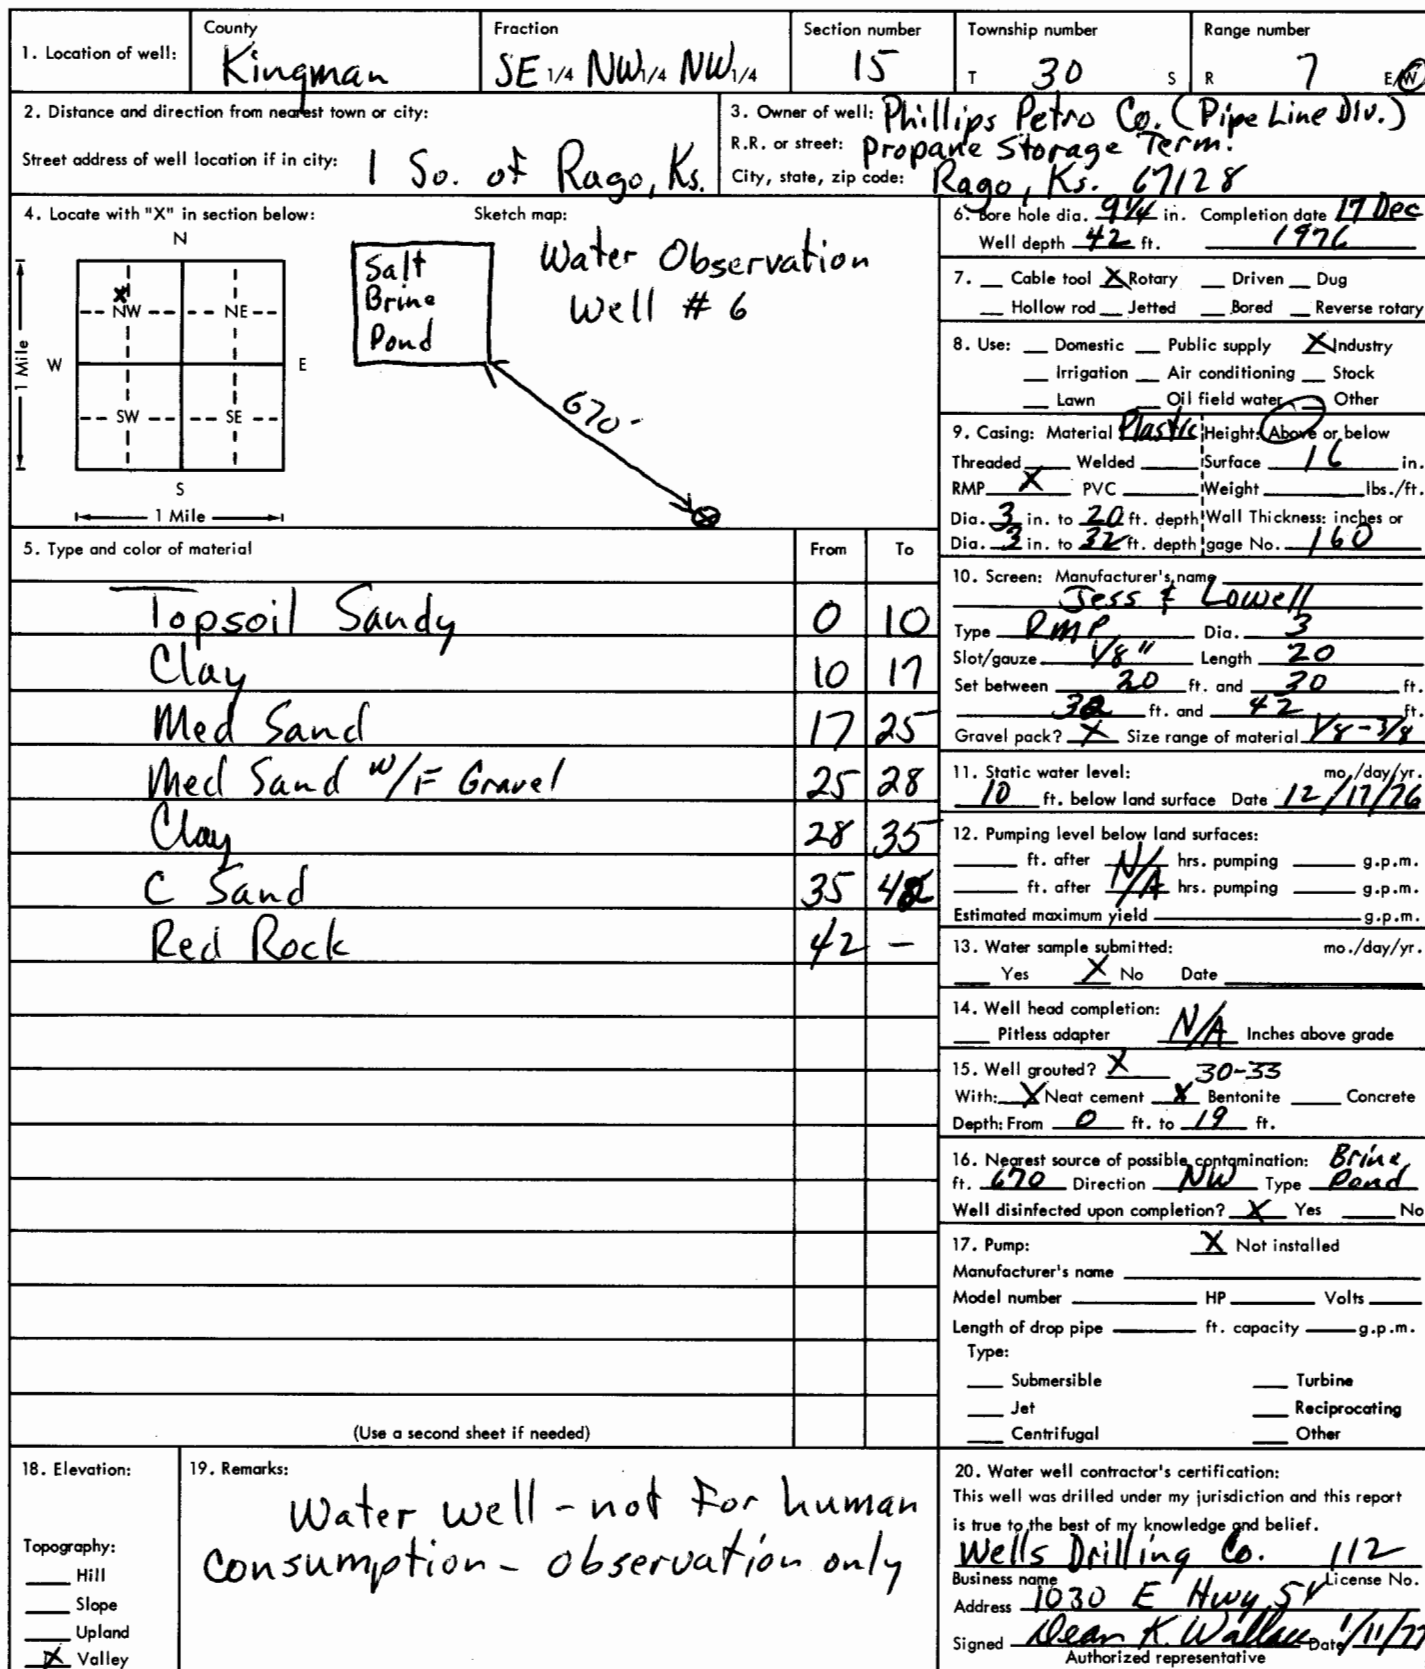 1. Location of well:
County
Kingman
Fraction
SE 1/4 NW 1/4 NW 1/4
Section number
15
Township number
T 30 S
Range number
R 7 E/W
2. Distance and direction from nearest town or city:
Street address of well location if in city: 1 So. of Rago, Ks.
3. Owner of well: Phillips Petro Co. (Pipe Line Div.)
R.R. or street: Propane Storage Term.
City, state, zip code: Rago, Ks. 67128
4. Locate with "X" in section below:
N
X
NW NE
W E
SW SE
S
1 Mile
1 Mile
Sketch map:
Salt
Brine
Pond
Water Observation
Well # 6
670'
5. Type and color of material From To
Topsoil Sandy 0 10
Clay 10 17
Med Sand 17 25
Med Sand w/F Gravel 25 28
Clay 28 35
C Sand 35 42
Red Rock 42 -
(Use a second sheet if needed)
6. Bore hole dia. 9 1/4 in. Completion date 17 Dec
Well depth 42 ft. 1976
7. __ Cable tool X Rotary __ Driven __ Dug
__ Hollow rod __ Jetted __ Bored __ Reverse rotary
8. Use: __ Domestic __ Public supply X Industry
__ Irrigation __ Air conditioning __ Stock
__ Lawn __ Oil field water __ Other
9. Casing: Material Plastic Height: Above or below
Threaded __ Welded __ Surface 16 in.
RMP X PVC __ Weight __ lbs./ft.
Dia. 3 in. to 20 ft. depth Wall Thickness: inches or
Dia. 3 in. to 32 ft. depth gage No. 160
10. Screen: Manufacturer's name
Jess & Lowell
Type RMP Dia. 3
Slot/gauze 1/8" Length 20
Set between 20 ft. and 30 ft.
32 ft. and 42 ft.
Gravel pack? X Size range of material 1/8-3/8
11. Static water level: mo./day/yr.
10 ft. below land surface Date 12/17/76
12. Pumping level below land surfaces:
__ ft. after N/A hrs. pumping __ g.p.m.
__ ft. after N/A hrs. pumping __ g.p.m.
Estimated maximum yield __ g.p.m.
13. Water sample submitted: mo./day/yr.
__ Yes X No Date __
14. Well head completion:
__ Pitless adapter N/A Inches above grade
15. Well grouted? X 30-33
With: X Neat cement X Bentonite __ Concrete
Depth: From 0 ft. to 19 ft.
16. Nearest source of possible contamination: Brine
ft. 670 Direction NW Type Pond
Well disinfected upon completion? X Yes __ No
17. Pump: X Not installed
Manufacturer's name __
Model number __ HP __ Volts __
Length of drop pipe __ ft. capacity __ g.p.m.
Type:
__ Submersible __ Turbine
__ Jet __ Reciprocating
__ Centrifugal __ Other
18. Elevation:
Topography:
__ Hill
__ Slope
__ Upland
X Valley
19. Remarks:
Water well - not For human
consumption - observation only
20. Water well contractor's certification:
This well was drilled under my jurisdiction and this report
is true to the best of my knowledge and belief.
Wells Drilling Co. 112
Business name License No.
Address 1030 E Hwy 54
Signed Dean K. Wallace Date 1/11/77
Authorized representative